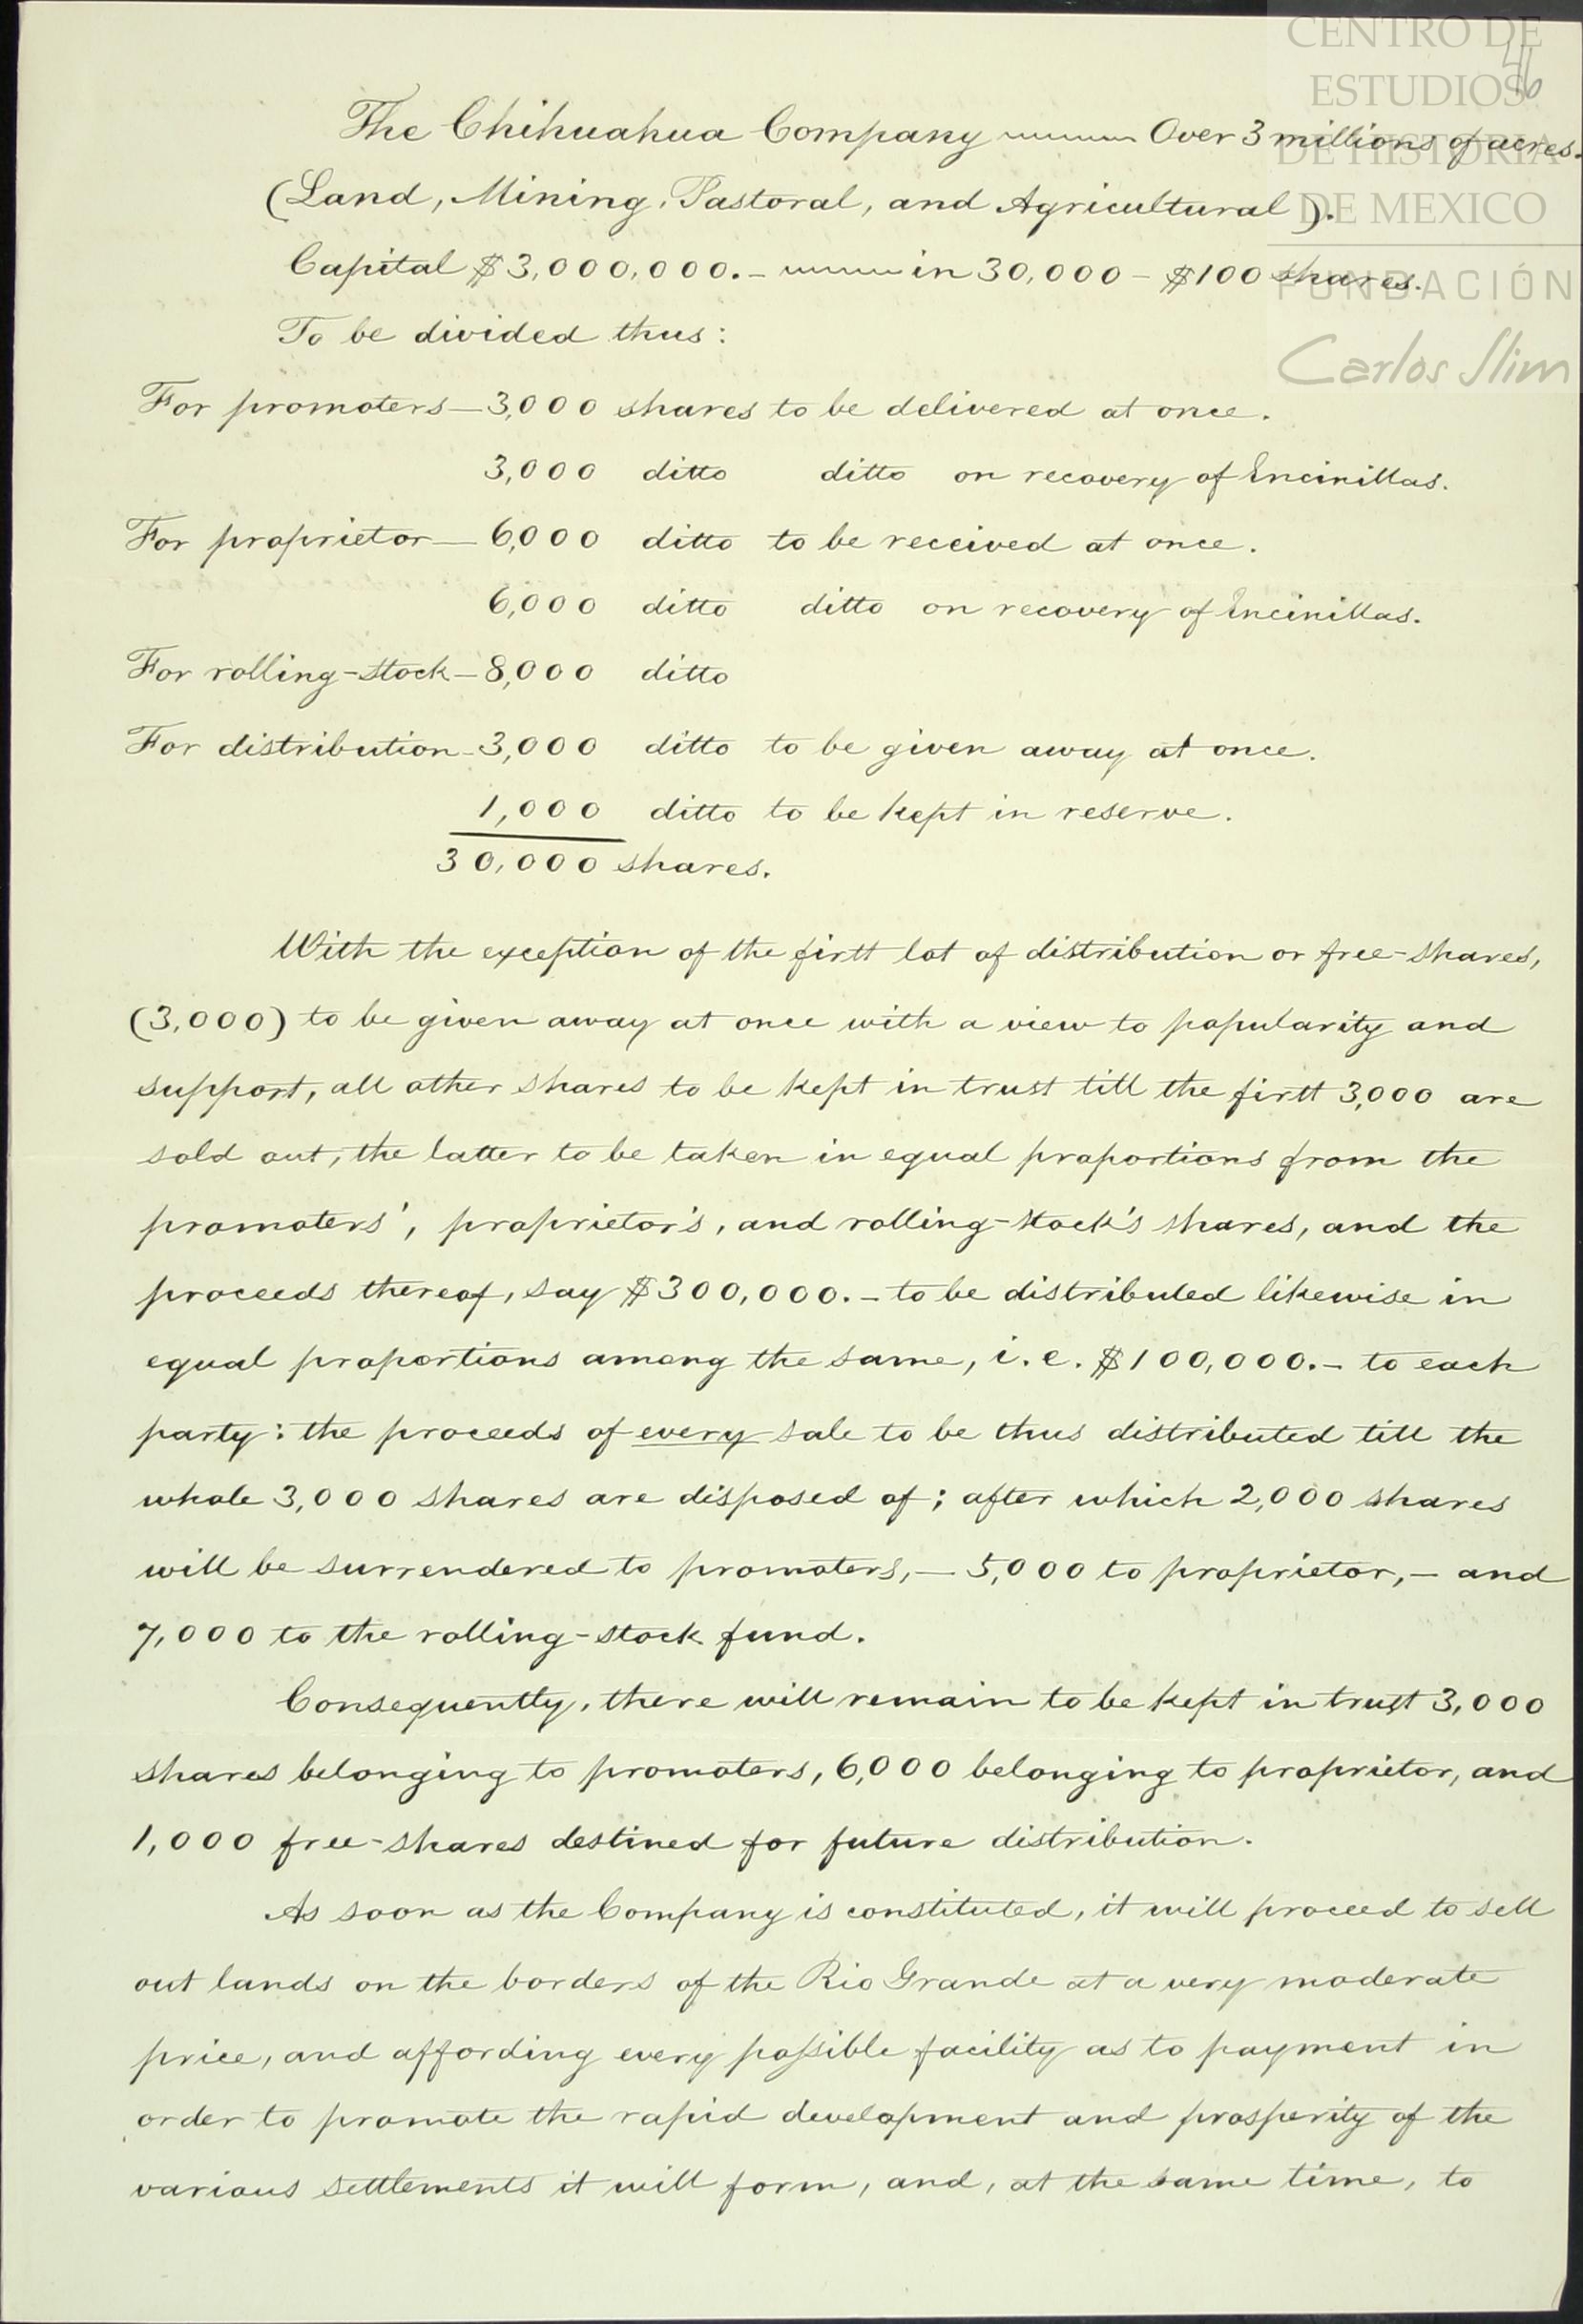 CENTRO DE
ESTUDIOS
DE HISTORIA
DE MEXICO
FUNDACIÓN
Carlos Slim
46
The Chihuahua Company Over 3 millions of acres.
(Land, Mining, Pastoral, and Agricultural).
Capital $3,000,000.- in 30,000 - $100 shares.
To be divided thus:
For promoters - 3,000 shares to be delivered at once.
3,000 ditto ditto on recovery of Encinillas.
For proprietor - 6,000 ditto to be received at once.
6,000 ditto ditto on recovery of Encinillas.
For rolling-stock - 8,000 ditto
For distribution - 3,000 ditto to be given away at once.
1,000 ditto to be kept in reserve.
30,000 shares.
With the exception of the first lot of distribution or free-shares,
(3,000) to be given away at once with a view to popularity and
support, all other shares to be kept in trust till the first 3,000 are
sold out, the latter to be taken in equal proportions from the
promoters', proprietor's, and rolling-stock's shares, and the
proceeds thereof, say $300,000.- to be distributed likewise in
equal proportions among the same, i.e. $100,000.- to each
party: the proceeds of every sale to be thus distributed till the
whole 3,000 shares are disposed of; after which 2,000 shares
will be surrendered to promoters, - 5,000 to proprietor, - and
7,000 to the rolling-stock fund.
Consequently, there will remain to be kept in trust 3,000
shares belonging to promoters, 6,000 belonging to proprietor, and
1,000 free-shares destined for future distribution.
As soon as the Company is constituted, it will proceed to sell
out lands on the borders of the Rio Grande at a very moderate
price, and affording every possible facility as to payment in
order to promote the rapid development and prosperity of the
various settlements it will form, and, at the same time, to